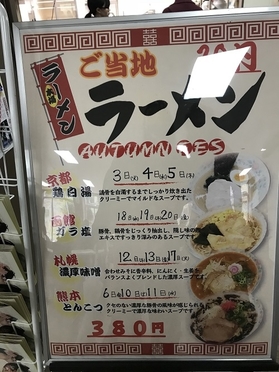 ご当地
ラーメン
ラーメン
AUTUMN FES
京都
鶏白湯
3日(火) 4日(水) 5日(木)
クリーミーでマイルドなスープです。
函館
ガラ塩
18日 19日 20日
エキスですっきり深みのあるスープです。
札幌
濃厚味噌
12日 13日 17日(火)
合わせみそに香辛料、にんにく・生姜を
バランスよくブレンドした濃厚スープです。
熊本
とんこつ
6日 10日 11日(水)
クセのない濃厚な豚骨の風味が感じられる
クリーミーで濃厚な味わいスープです。
380円